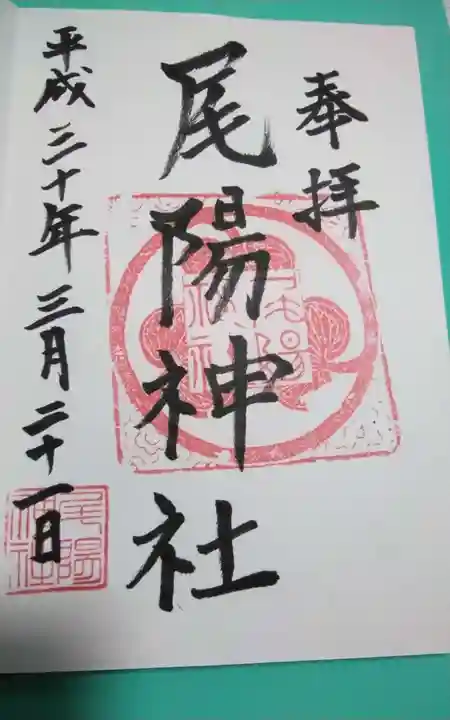 奉拝
尾陽神社
平成三十年三月二十一日
尾陽
神社
尾陽
神社